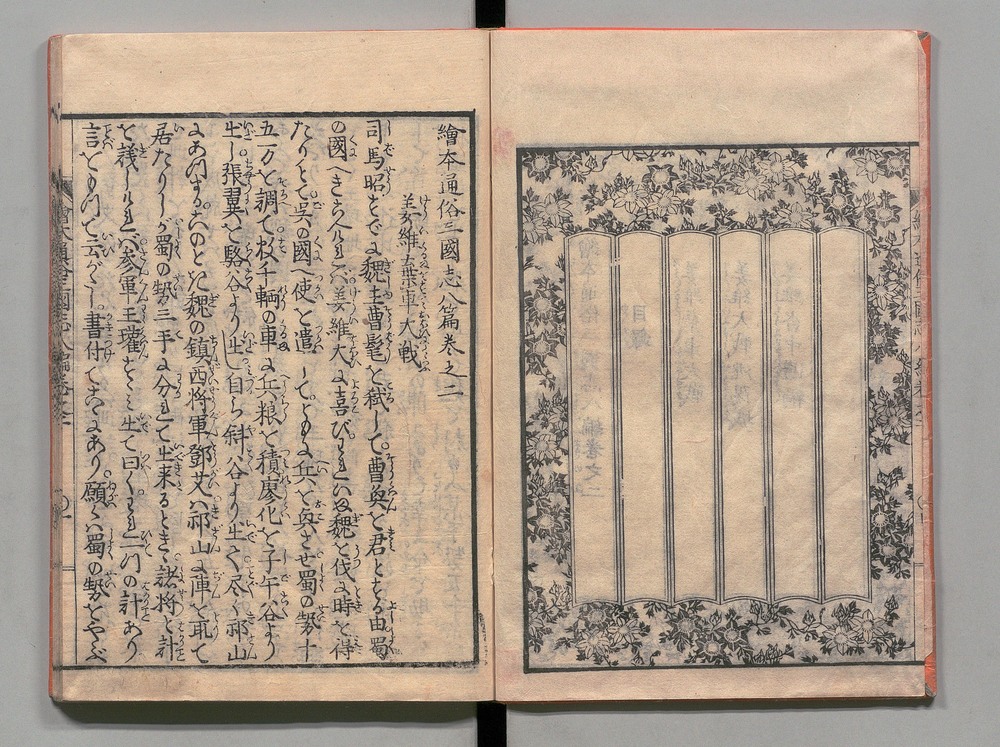 繪本通俗三國志八篇卷之二
姜維棄車大戰
司馬昭すでに魏主曹髦を弑して曹奐を君とする由蜀
の國へきこへければ姜維大に喜びわれいま魏を伐に時を得
たりとて呉の國へ使を遣してともに兵を興させ蜀の勢十
五万を調て数千輌の車に兵粮を積廖化を子午谷より
出し張翼を駱谷より出し自ら斜谷より出て尽く祁山
にあつまるこのとき魏の鎮西将軍鄧艾ハ祁山に陣を取て
居たりしが蜀の勢三手に分れて出来るときゝ諸将と計
を議しければ参軍王瓘すゝミ出て曰くわれ一つの計あり
言をもつて云がたし書付てこゝにあり願くハ蜀の勢をやぶ